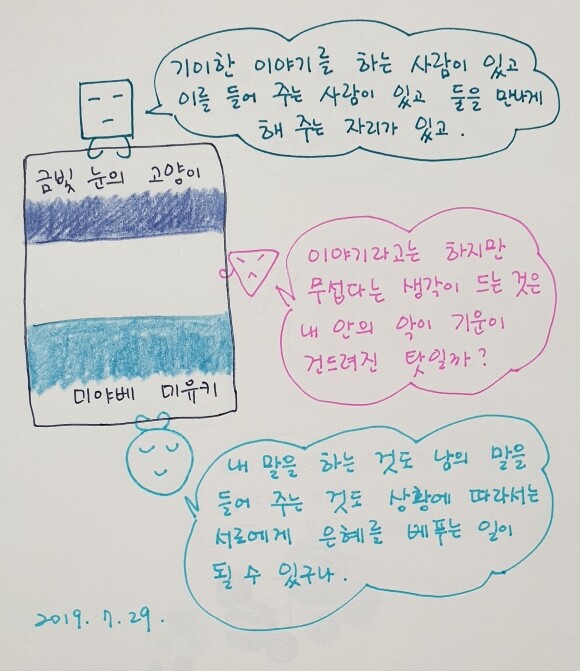 기이한 이야기를 하는 사람이 있고
이를 들어 주는 사람이 있고 둘을 만나게
해 주는 자리가 있고.
금빛 눈의 고양이
이야기라고는 하지만
무섭다는 생각이 드는 것은
내 안의 악이 기운이
건드려진 탓일까?
미야베 미유키
내 말을 하는 것도 남의 말을
들어 주는 것도 상황에 따라서는
서로에게 은혜를 베푸는 일이
될 수 있구나.
2019. 7. 29.